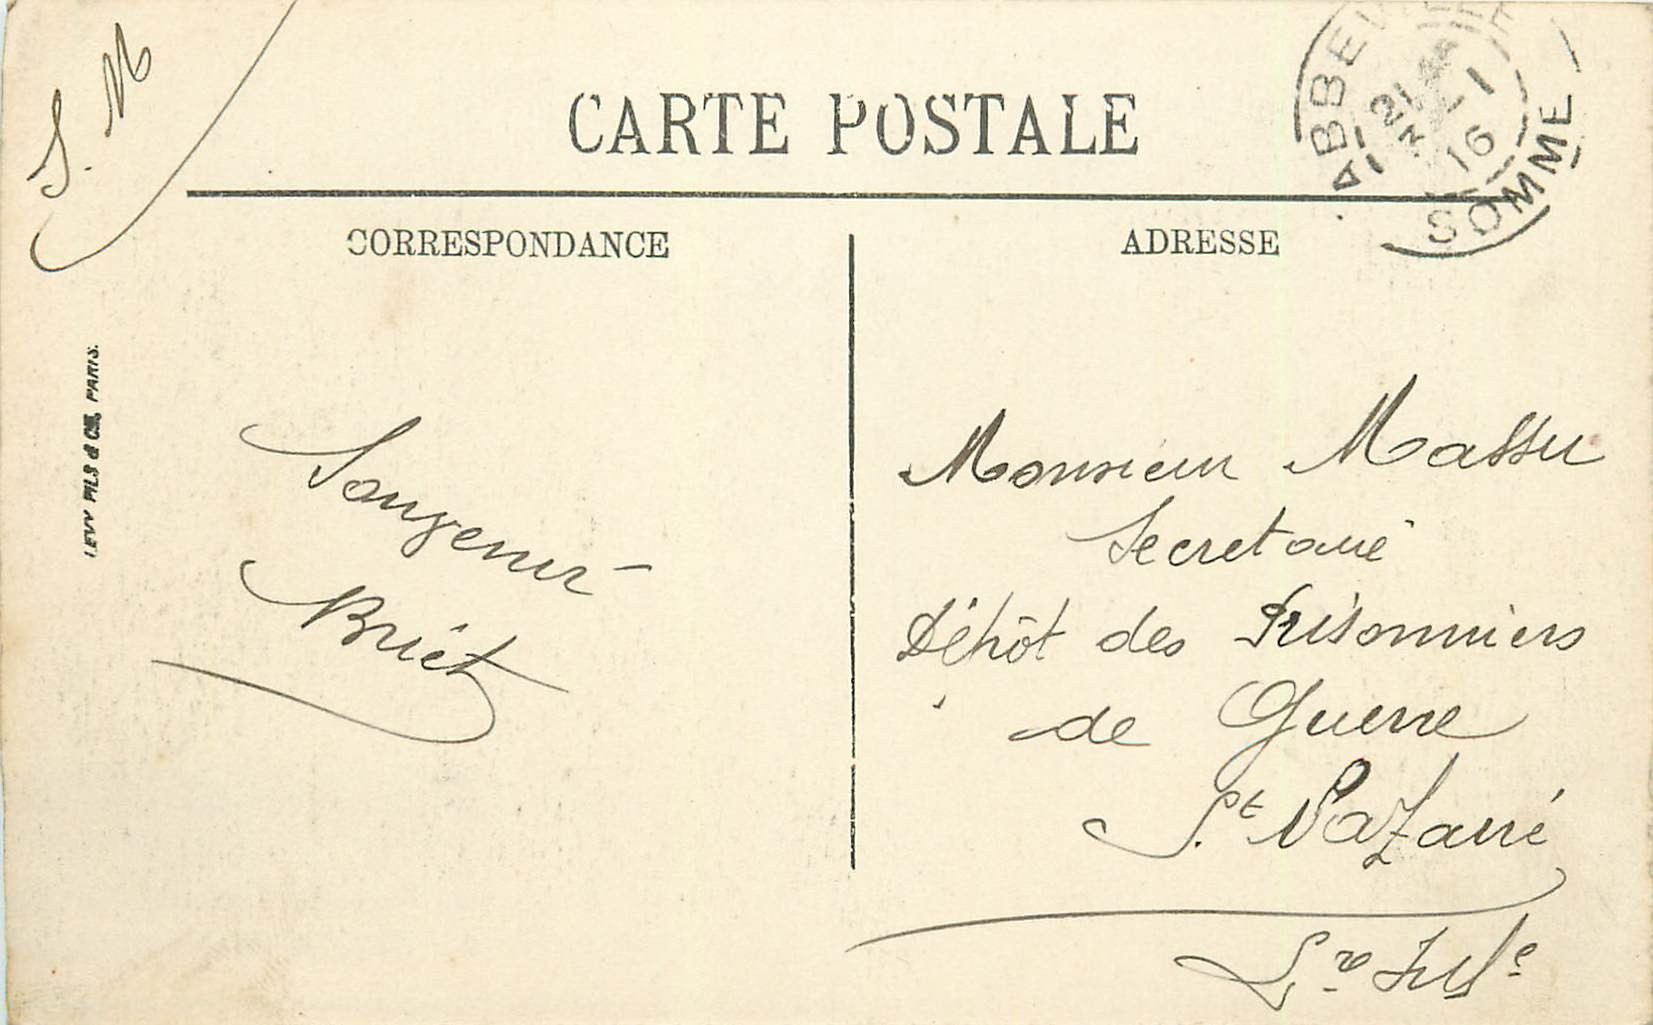 S. M
CARTE POSTALE
ABBEVILLE
SOMME
16
CORRESPONDANCE
ADRESSE
LEVY FILS & Cie, PARIS.
Souvenir
Briet
Monsieur Massu
Secretaire
Dépôt des Prisonniers
de Guerre
St Nazaire
Lre Infre